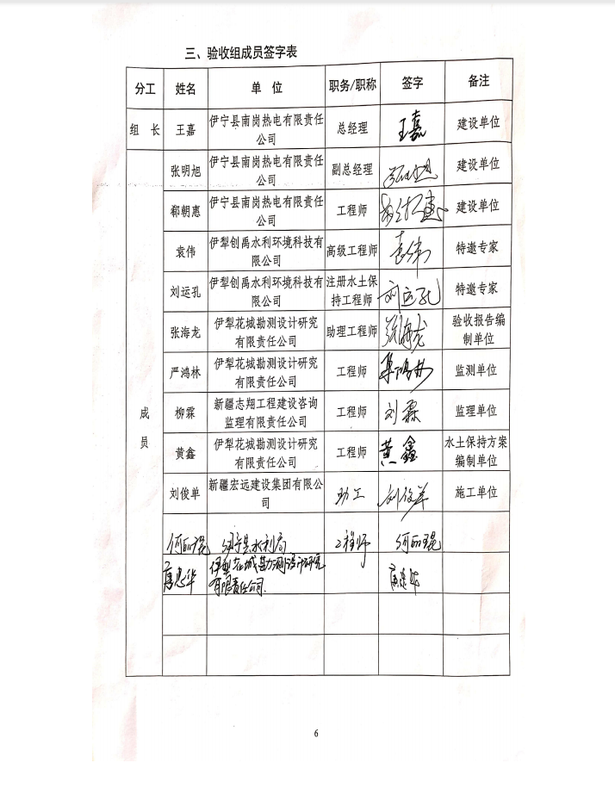 三、验收组成员签字表
分工 姓名 单 位 职务/职称 签字 备注
组 长 王嘉 伊宁县南岗热电有限责任公司 总经理 王嘉 建设单位
成员
张明旭 伊宁县南岗热电有限责任公司 副总经理 建设单位
郗朝惠 伊宁县南岗热电有限责任公司 工程师 建设单位
袁伟 伊犁创禹水利环境科技有限公司 高级工程师 袁伟 特邀专家
刘运孔 伊犁创禹水利环境科技有限公司 注册水土保持工程师 刘运孔 特邀专家
张海龙 伊犁花城勘测设计研究有限责任公司 助理工程师 张海龙 验收报告编制单位
严鸿林 伊犁花城勘测设计研究有限责任公司 工程师 监测单位
柳霖 新疆志翔工程建设咨询监理有限责任公司 工程师 刘霖 监理单位
黄鑫 伊犁花城勘测设计研究有限责任公司 工程师 黄鑫 水土保持方案编制单位
刘俊单 新疆宏远建设集团有限公司 助工 施工单位
水利局 工程师
伊犁花城勘测设计研究有限责任公司.
6